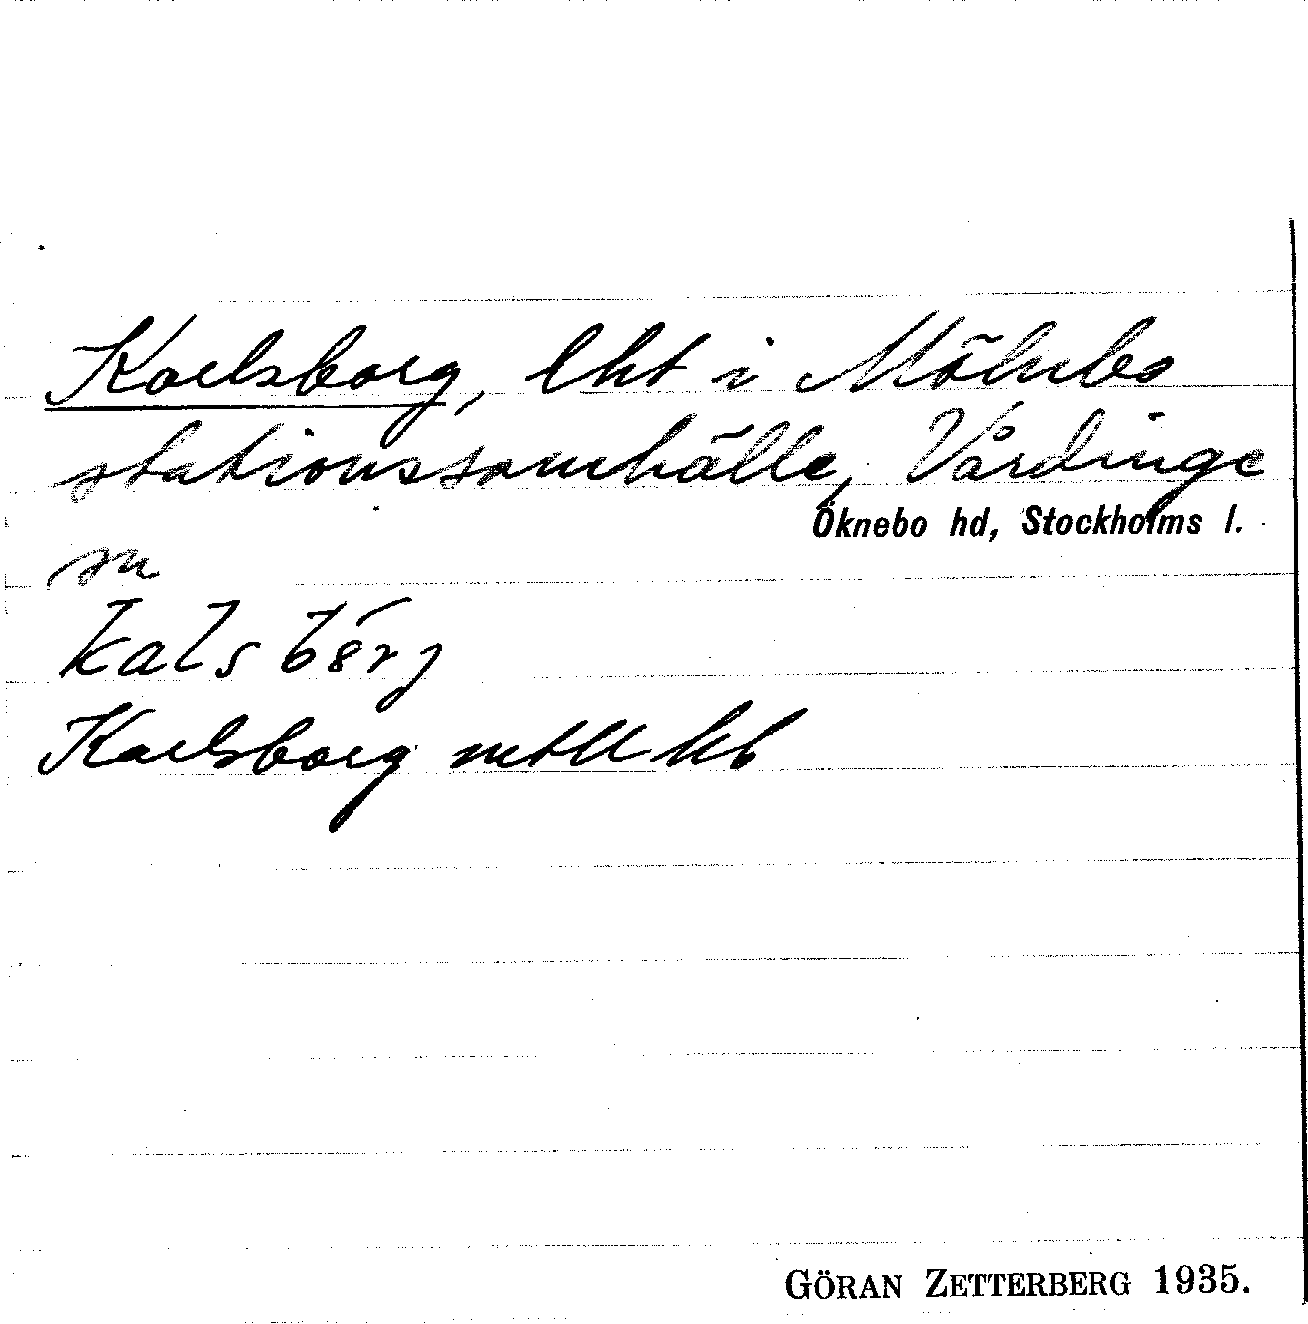 Karlsborg, lht i Mölnbo
stationssamhälle, Vårdinge
Öknebo hd, Stockholms l.
sn
kalsbórj
Karlsborg mtll kb
GÖRAN ZETTERBERG 1935.